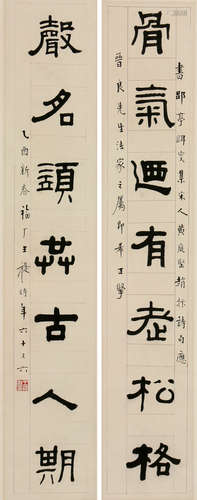 書郘亭眲叟集宋人黃庭堅趙抃詩句應
骨氣迺有老松格
晉良先生法家之屬即希正擘
聲名共古人期
乙酉新春福厂王禔時年六十又六